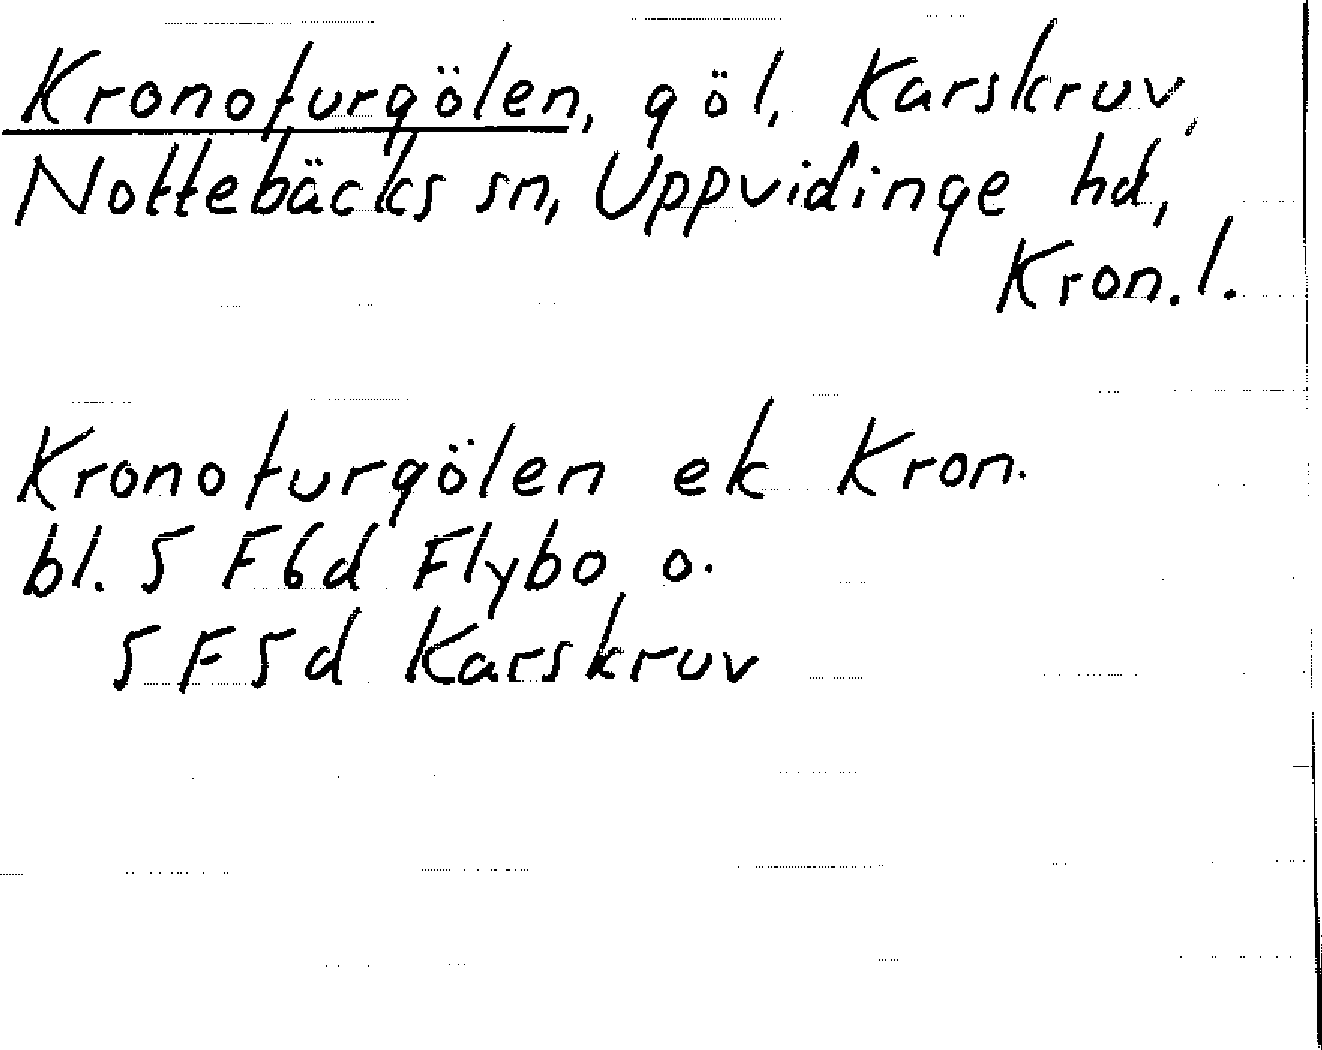 Kronoturgölen, göl, Karskruv,
Nottebäcks sn, Uppvidinge hd,
Kron. l.
Kronoturgölen ek Kron.
bl. 5 F 6d Flybo o.
5 F 5d Karskruv